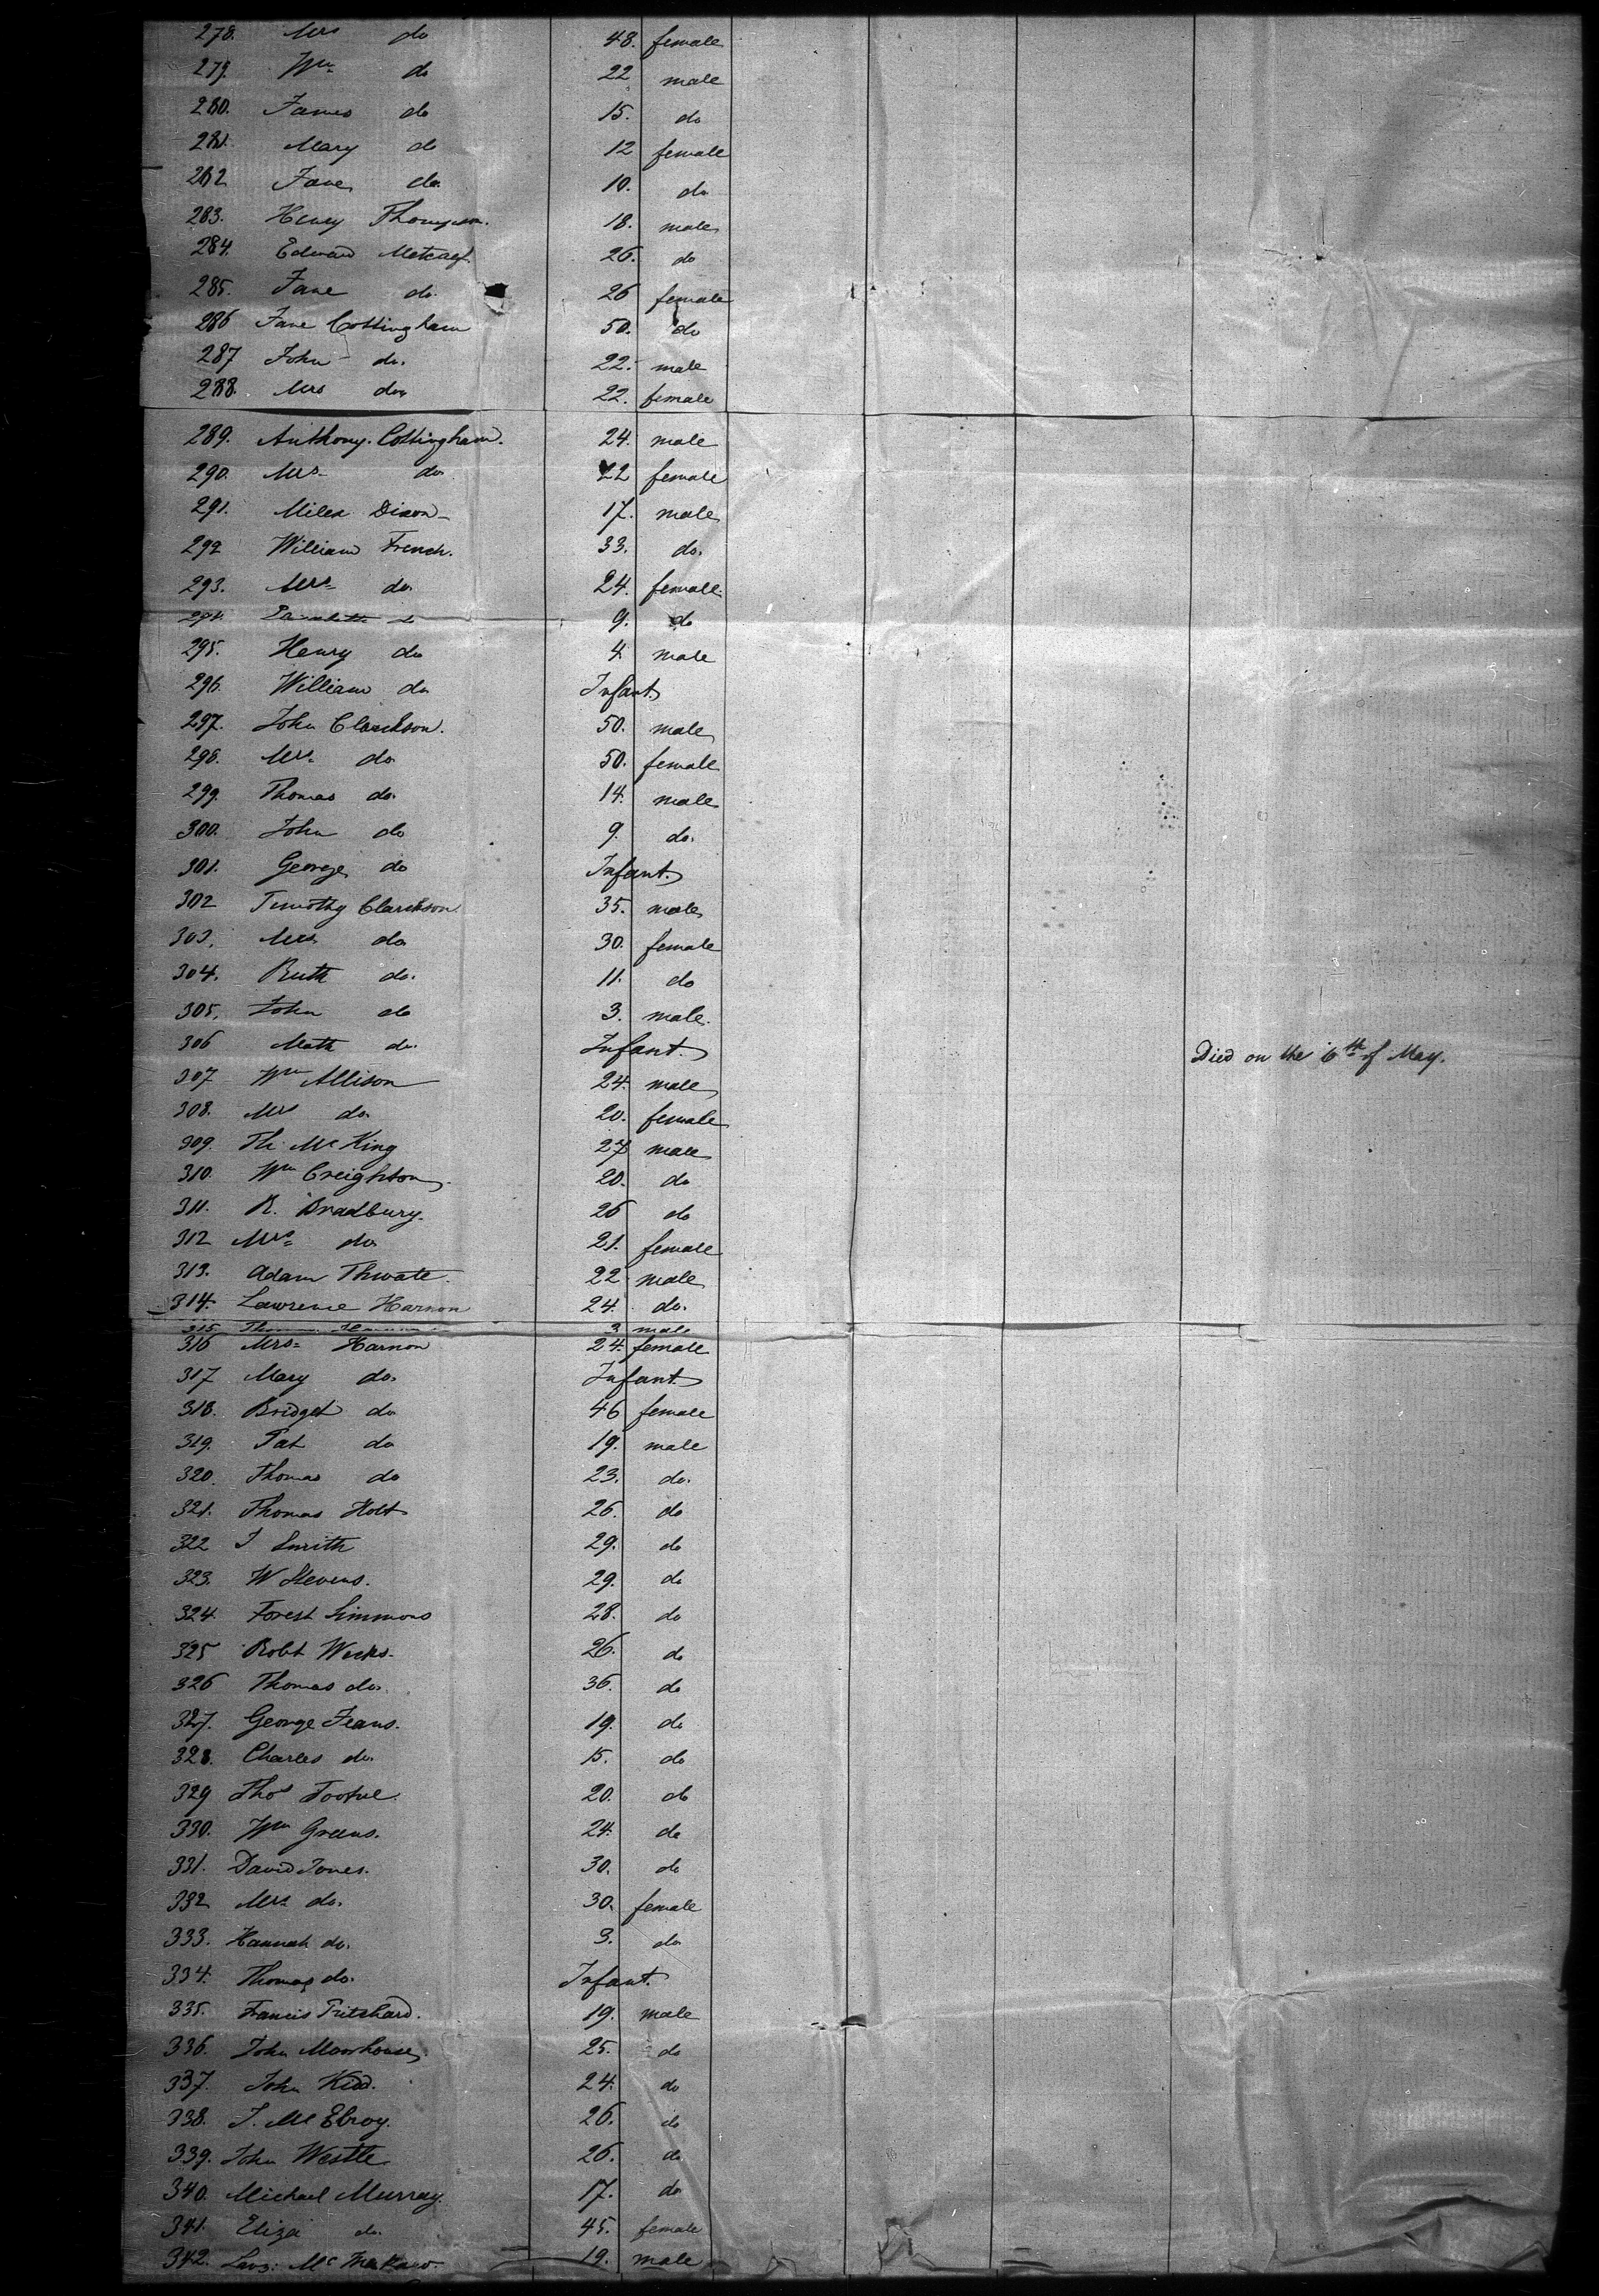 278. Mrs do 48. female
279. Wm do 22 male
280. James do 15. do
281. Mary do 12 female
282 Jane do. 10. do
283. Henry Thompson. 18. male
284. Edward Metcalf. 26. do
285. Jane do. 26 female
286 Jane Cottingham 50. do
287 John do. 22. male
288. Mrs do 22. female
289. Anthony Cottingham. 24. male
290. Mrs do 22 female
291. Miles Dixon 17. male
292 William French. 33. do.
293. Mrs do. 24. female
294. do 9. do
295. Henry do 4 male
296. William do Infant
297. John Clarkson. 50. male
298. Mrs. do 50. female
299. Thomas do. 14. male
300. John do 9. do.
301. George do Infant.
302 Timothy Clarkson 35. male
303. Mrs do 30. female
304. Ruth do. 11. do
305. John do 3. male.
306 Math do. Infant. Died on the 6th of May.
307 Wm Allison 24. male
308. Mrs do. 20. female
309. Th. Mc King 27 male
310. Wm Creighton. 20. do
311. R. Bradbury. 26 do
312 Mrs do 21. female
313. Adam Thwate. 22 male
314. Lawrence Harnon 24. do.
315. 3 male
316 Mrs Harnon 24. female
317 Mary do. Infant.
318. Bridget do 46 female
319. Pat do 19. male
320. Thomas do 23. do.
321. Thomas Holt 26. do
322 J Smith 29. do
323. W Stevens. 29. do
324. Forest Simmons 28. do
325 Robt Weeks. 26. do
326 Thomas do. 36. do
327. George Jeans. 19. do
328. Charles do. 15. do
329 Thos 20. do
330. Wm Greens. 24. do
331. David Jones. 30. do
332 Mrs do. 30. female
333. Hannah do. 3. do
334. Thomas do. Infant.
335. Francis Pritchard. 19. male
336. John Moorhouse. 25. do
337. John Kidd. 24. do
338. J. Mc Elroy. 26. do
339. John Westle 26. do
340. Michael Murray. 17. do
341. Eliza do. 45. female
342. Mc 19. male